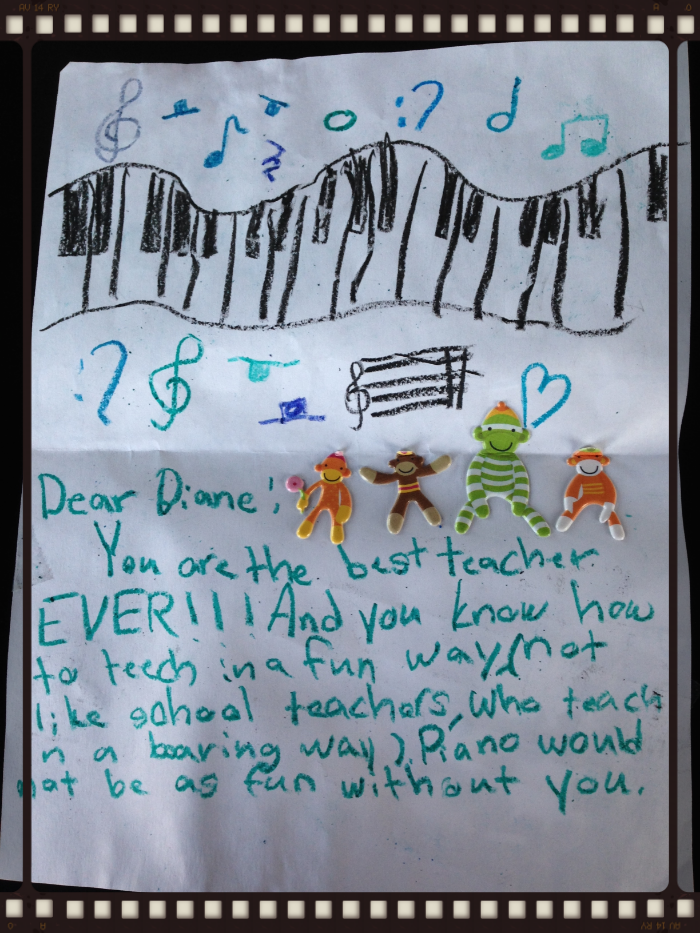 AU 14 RY
Dear Diane!
You are the best teacher
EVER!!! And you know how
to teech in a fun way (not
like school teachers, who teach
in a boaring way). Piano would
not be as fun without you.